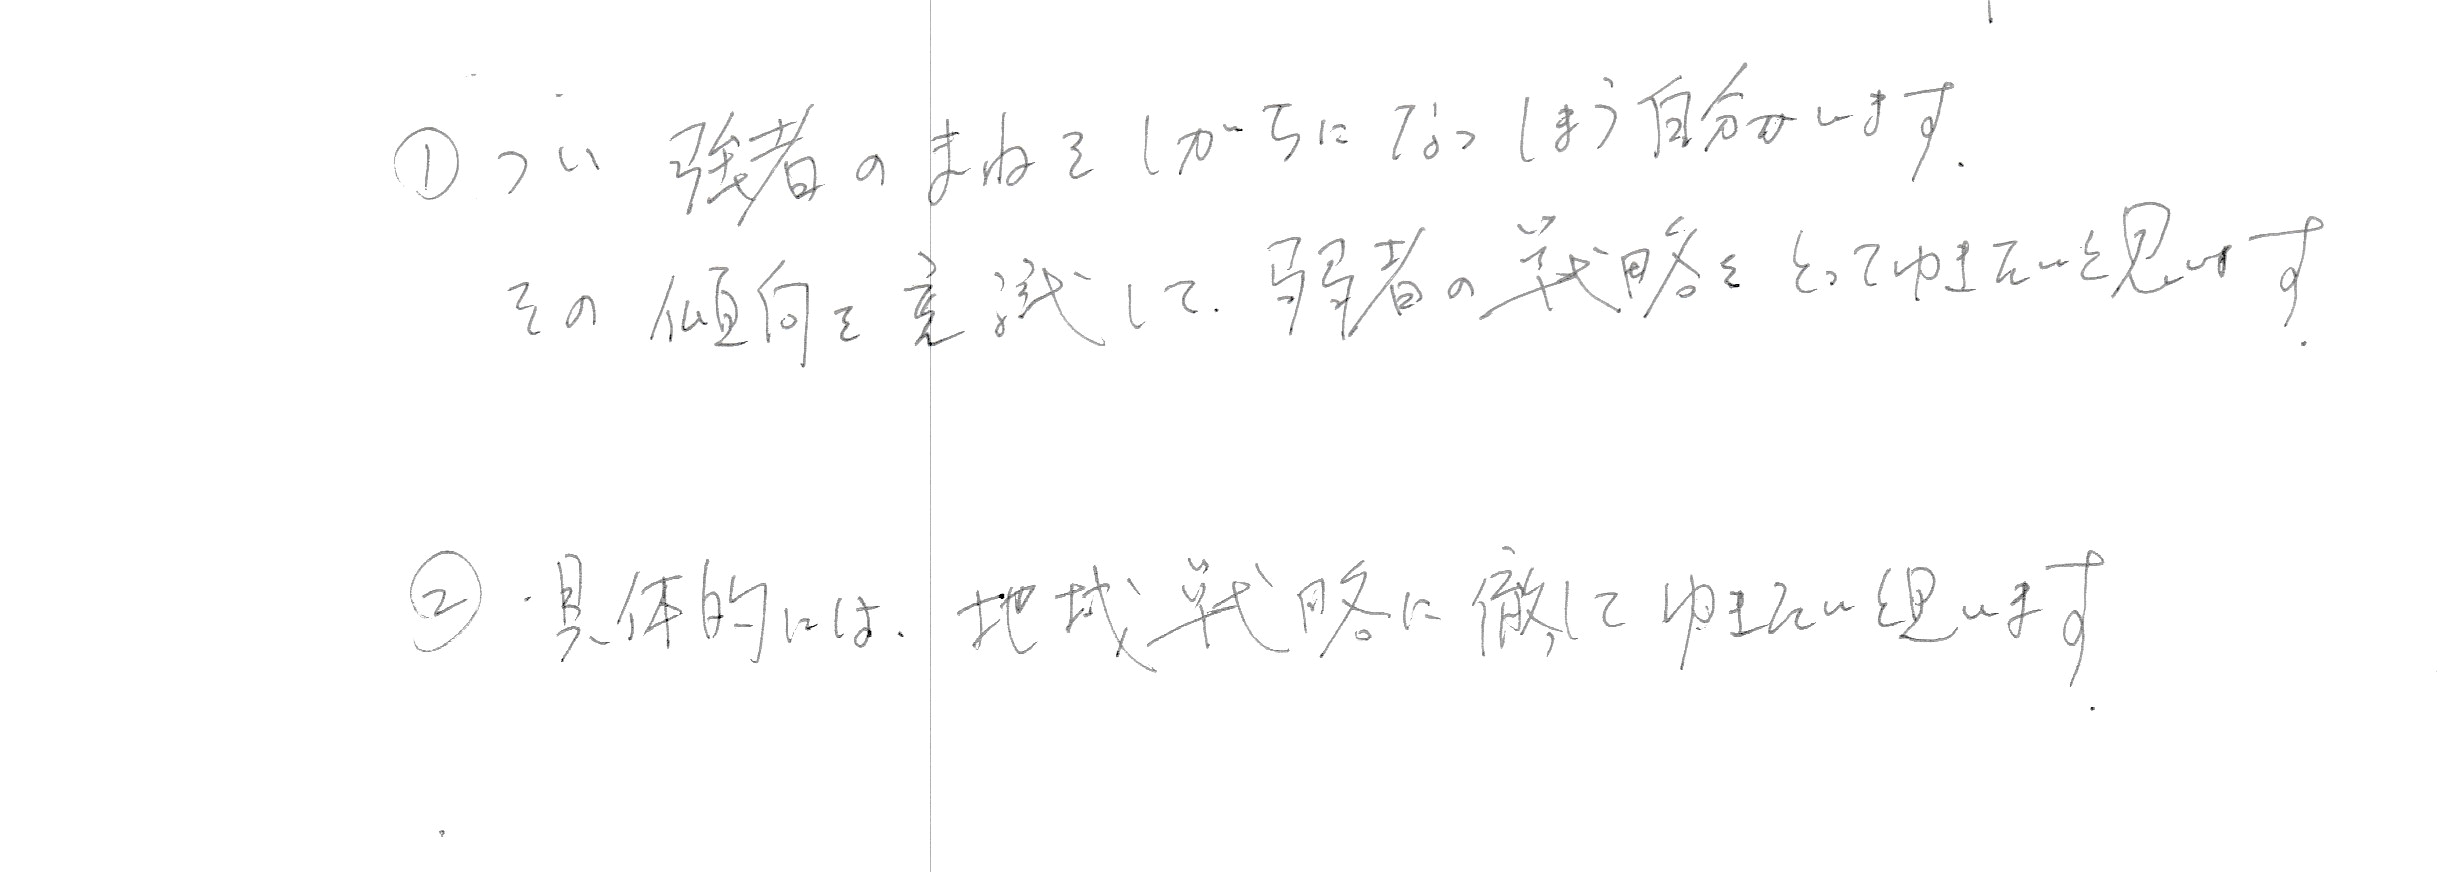 ① つい 強者のまねをしがちになっしまう自分がいます.
その傾向を意識して. 弱者の戦略をとってゆきたいと思います.
② 具体的には. 地域戦略に徹してゆきたいと思います.